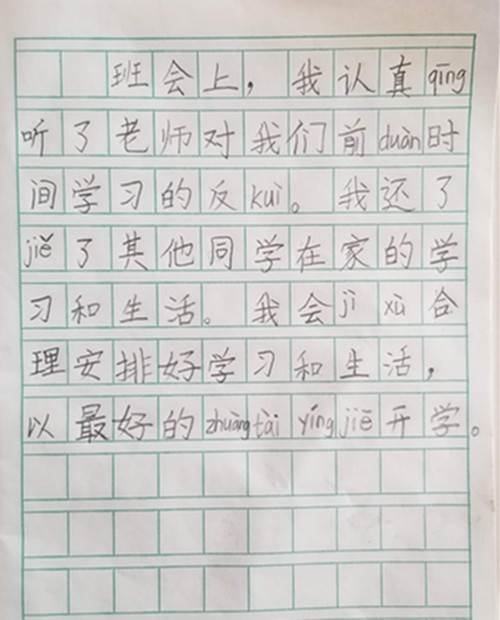 班会上，我认真qīng
听了老师对我们前duàn时
间学习的反kuì。我还了
jiě了其他同学在家的学
习和生活。我会jì xù合
理安排好学习和生活，
以最好的zhuàngtài yíngjiē开学。